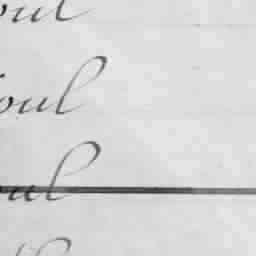 oul
oul
oul